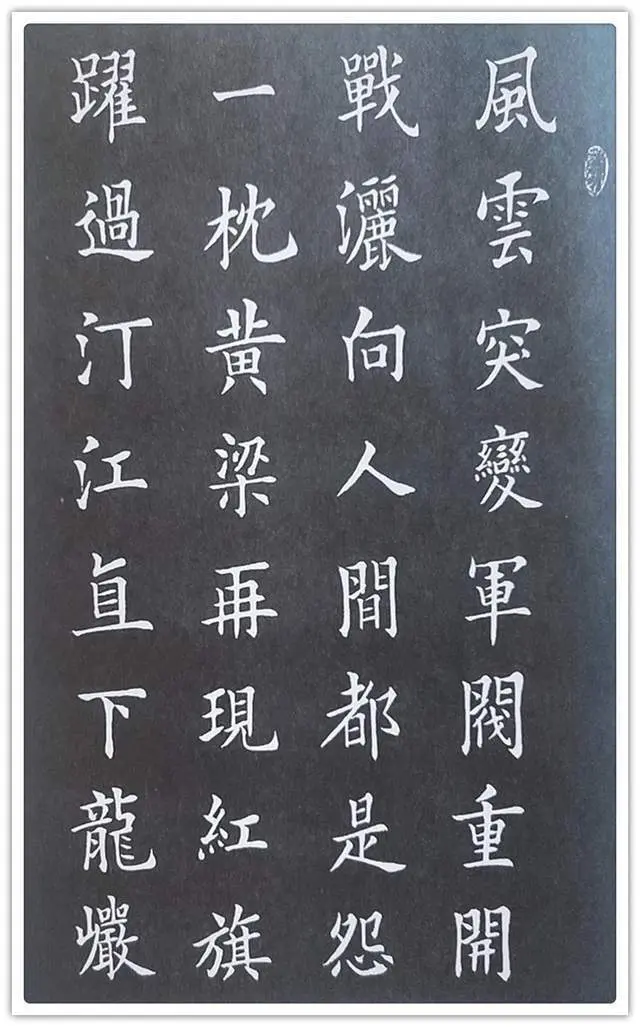 風雲突變軍閥重開
戰灑向人間都是怨
一枕黄梁再現紅旗
躍過汀江直下龍巖